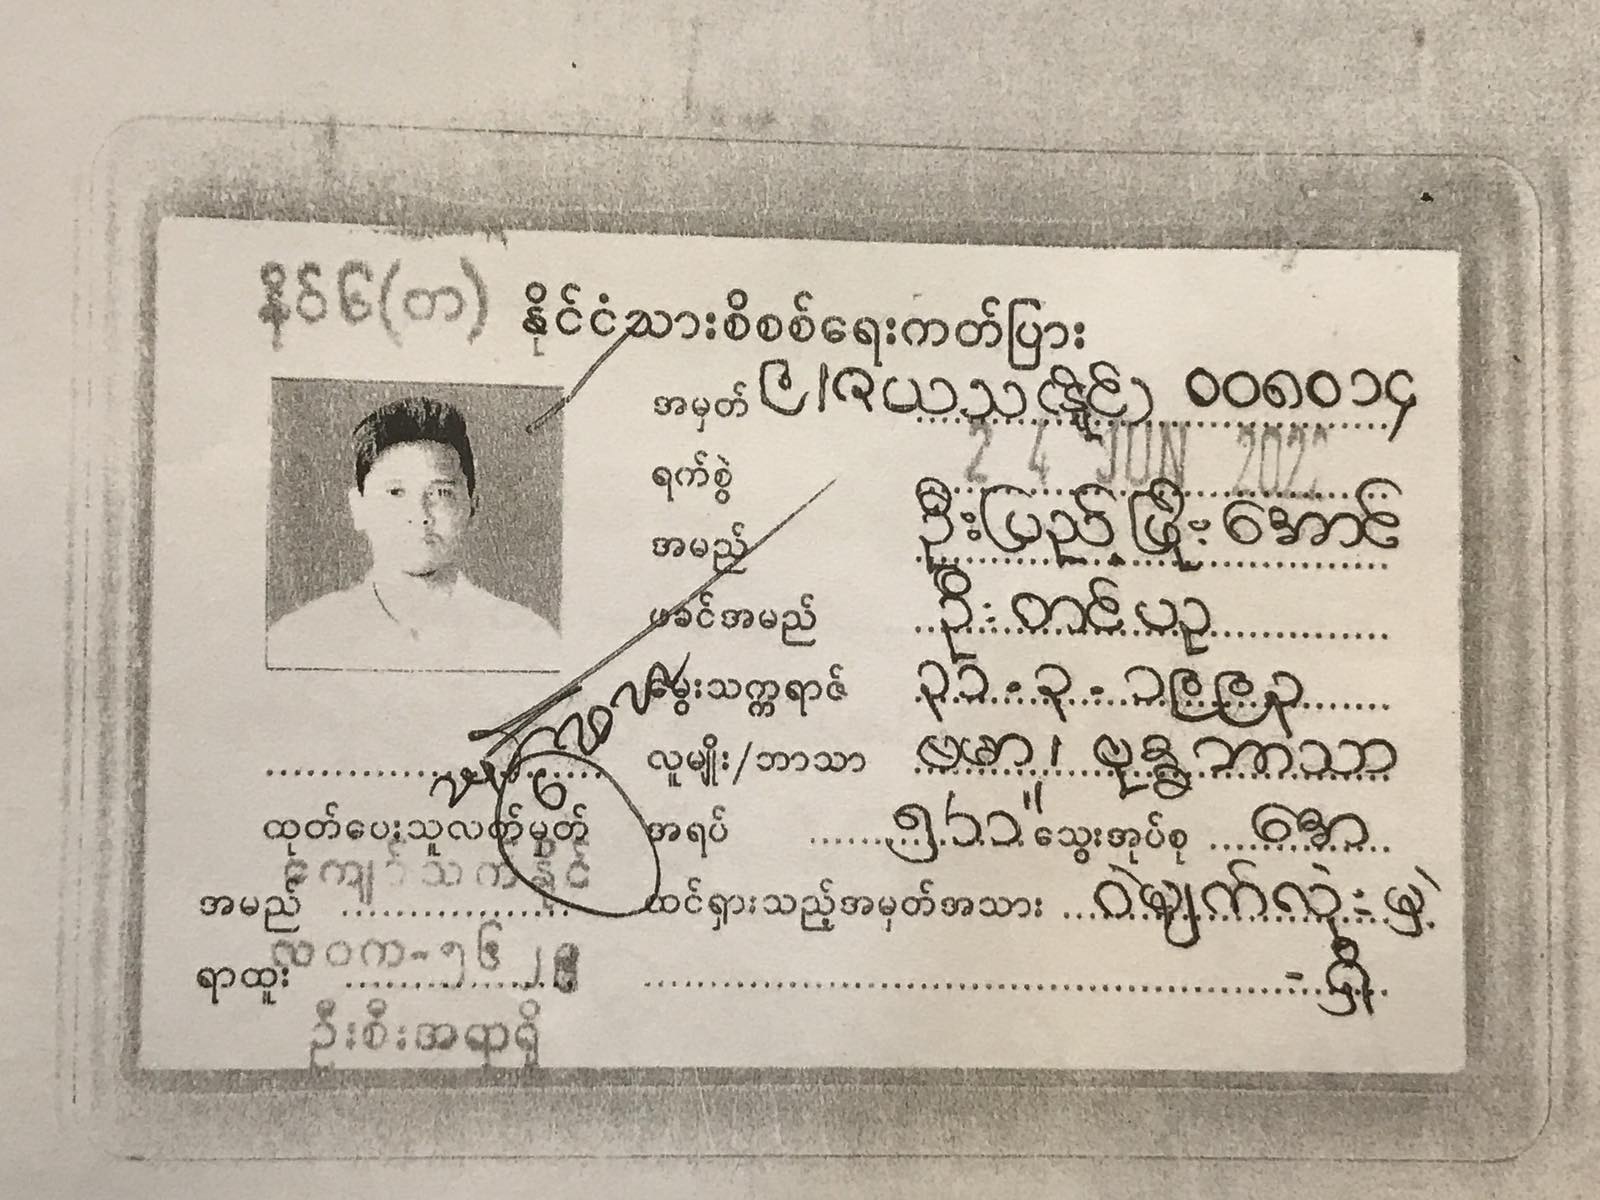 နိဝ်ဓ(တ) နိုင်ငံသားစိစစ်ရေးကတ်ပြား
အမှတ် ၉/ဇယသ(နိုင်) ၀၀၈၀၁၄
ရက်စွဲ 2 4 JUN 202
အမည် ဦးပြည့်ဖြိုးအောင်
ဖခင်အမည် ဦးတင်ယု
မွေးသက္ကရာဇ် ၃၁.၃.၁၉၉၃
လူမျိုး/ဘာသာ ဗမာ၊ ဗုဒ္ဓဘာသာ
ထုတ်ပေးသူလက်မှတ် အရပ် ၅'၁၁" သွေးအုပ်စု အော
အမည် ကျော်သက်နိုင် ထင်ရှားသည့်အမှတ်အသား ဝဲမျက်လုံး
ရာထူး လဝက-၅၆၂
ဦးစီးအရာရှိ